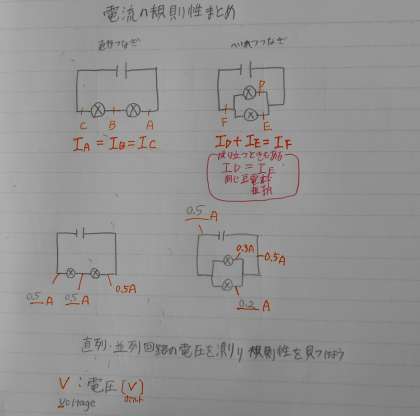 電流の規則性まとめ
直列つなぎ
へい列つなぎ
C B A
D
F
E
IA = IB = IC
ID + IE = IF
成り立つときもある
ID = IE
同じ豆電球
0.5 A
0.3A
0.5A
0.5 A 0.5 A 0.5A
0.2 A
直列・並列回路の電圧を測り規則性を見つけよう
V : 電圧 [V]
voltage